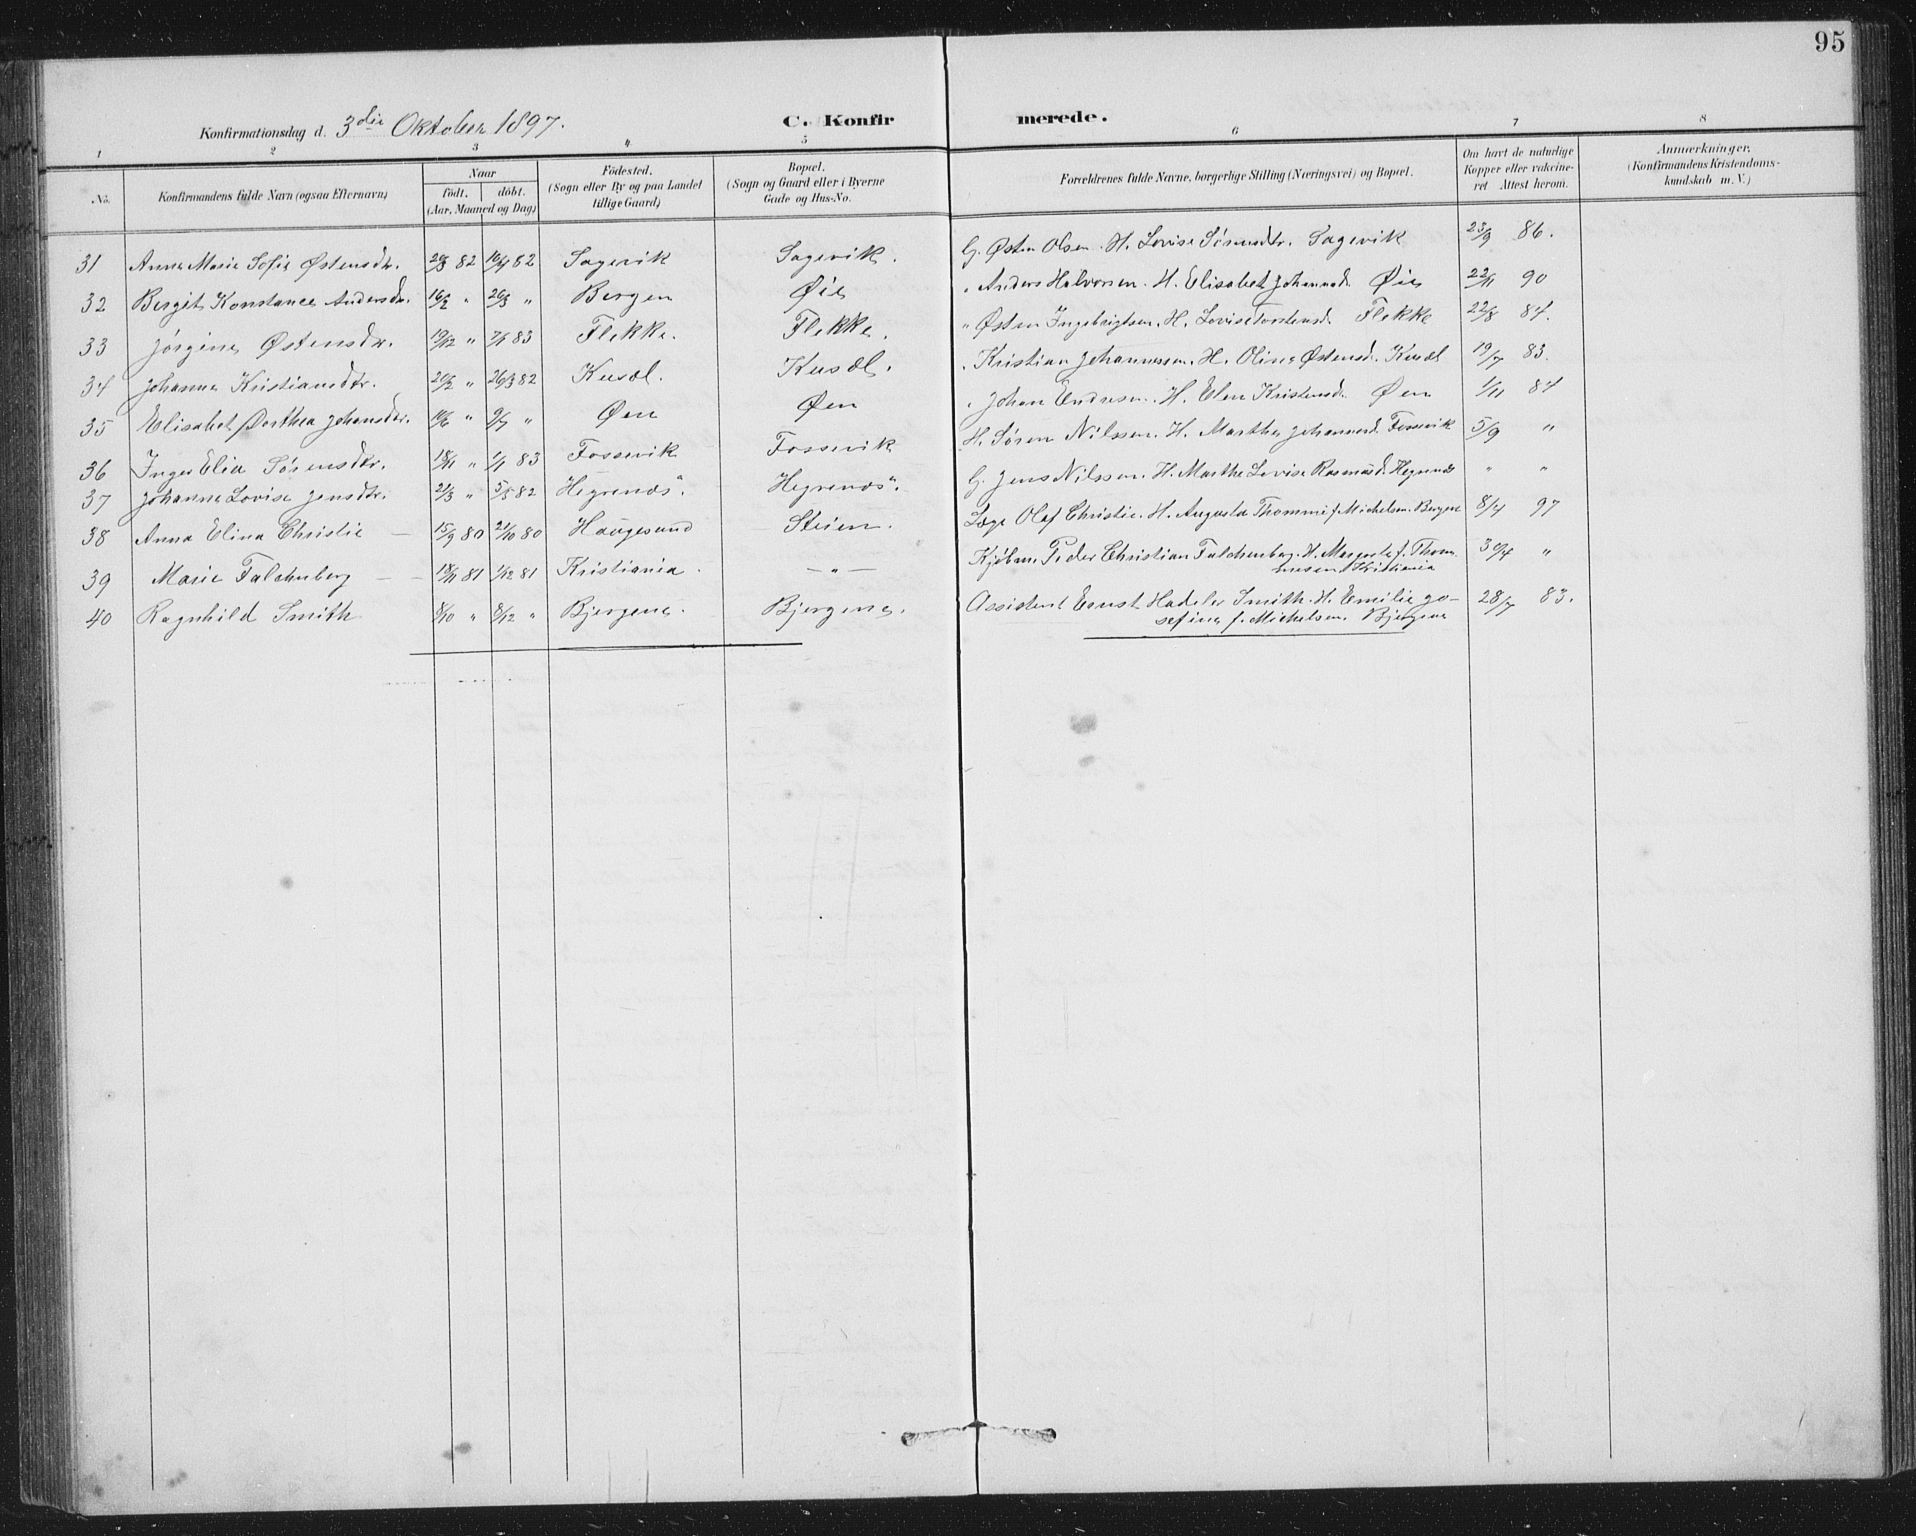 95
Konfirmationsdag d. 3die Oktober 1897. C. Konfir merede.
1 2 3 4 5 6 7 8
No. Konfirmandens fulde Navn (ogsaa Efternavn) Naar født. døbt. (Aar, Maaned og Dag) Födested. (Sogn eller By og paa Landet tillige Gaard) Bopæl. (Sogn og Gaard eller i Byerne Gade og Hus-No. Forældrenes fulde Navne, borgerlige Stilling (Næringsvei) og Bopæl. Om havt de naturlige Kopper eller vakcineret Attest herom. Anmærkninger. (Konfirmandens Kristendomskundskab m. V.)
31 Anne Marie Sofie Østensdtr. 20/3 82 10/4 82 Sagevik Sagevik. G. Østen Olsen. H. Lovise Sørensdtr. Sagevik 23/9 86.
32 Bergit Konstance Andersdr. 16/2 " 26/3 " Bergen Øie " Anders Halvorsen. H. Elisabet Johannsd. Øie 22/11 90
33 Jørgine Østensdr. 19/12 " 7/1 83 Flekke. Flekke. " Østen Ingebrigtsen. H. Lovise Torstensd. Flekke 22/8 84.
34 Johanne Kristiansdtr. 20/2 " 26/3 82 Kusæl. Kusæl. " Kristian Johannessen. H. Oline Østensd. Kusæl 19/7 83.
35 Elisabet Dorthea Johansdtr. 10/6 " 9/7 " Øen Øen " Johan Endresen. H. Elen Kristensd. Øen 1/11 84
36 Inger Elia Sørensdtr. 18/11 " 1/1 83 Fossevik Fossevik H. Søren Nilssen. H. Marthe Johannesd. Fossevik 5/9 "
37 Johanne Lovise Jensdtr. 21/3 " 5/3 82 Hegrenæs". Hegrenæs". G. Jens Nilssen. H. Marthe Lovise Rasmusd. Hegrenæs " "
38 Anna Elina Christie 15/9 80 21/10 80 Haugesund Steien. Læge Olaf Christie. H. Augusta Thommine f. Michelsen. Bergen 8/4 97
39 Marie Falchenberg 18/11 81 1/12 81 Kristiania. — " — Kjøbm. Peder Christian Falchenberg. H. Margrete f. Thom-
mesen. Kristiania 30/4 "
40 Ragnhild Smith 8/10 " 8/12 " Bjergene. Bjergene. Assistent Ernst Hadeler Smith. H. Emilie Jo-
sefine f. Michelsen. Bjergene 28/7 83.